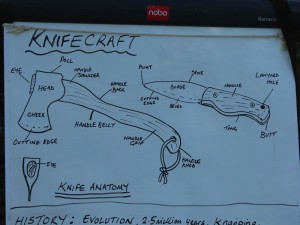 nobo
KNIFECRAFT
POLL
EYE
HANDLE
SHOULDER
HEAD
HANDLE
BACK
CHEEK
CUTTING EDGE
HANDLE BELLY
HANDLE
GRIP
HANDLE
KNOB
POINT
SPINE
BLADE
HANDLE
LANYARD
HOLE
CUTTING
EDGE
BEVEL
TANG
BUTT
EYE
KNIFE ANATOMY
HISTORY: EVOLUTION, 2.5 million years, Knapping